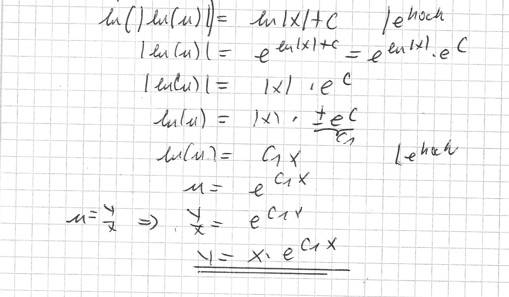 ln(|ln(u)|) = ln|x| + C |e hoch
|ln(u)| = e^{ln|x|+C} = e^{ln|x|} · e^C
|ln(u)| = |x| · e^C
ln(u) = |x| · ± e^C
C₁
ln(u) = C₁ x |e hoch
u = e^{C₁ x}
u = y/x ⇒ y/x = e^{C₁ x}
y = x · e^{C₁ x}